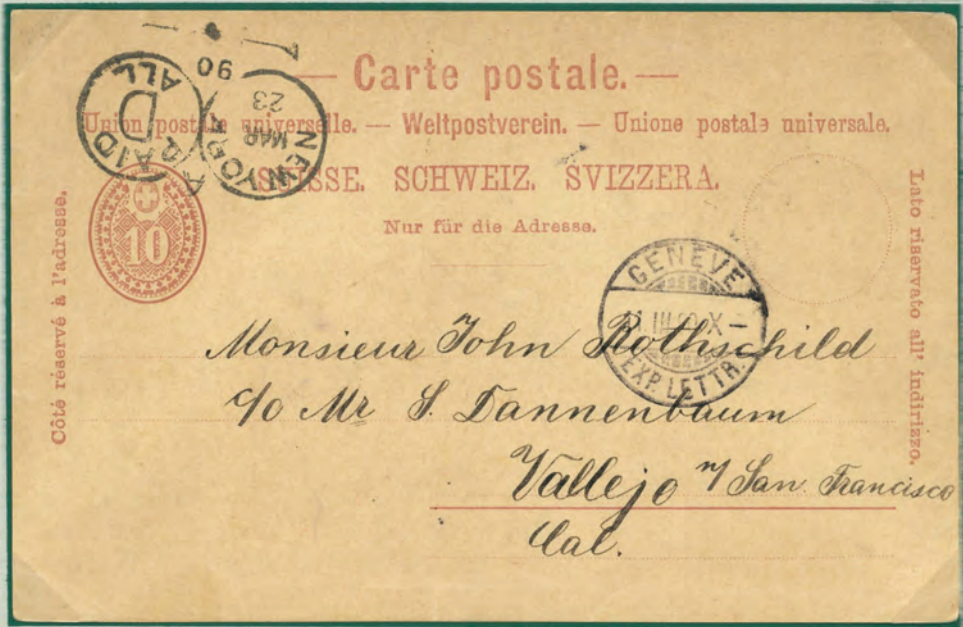 — Carte postale. —
Union postale universelle. — Weltpostverein. — Unione postale universale.
SUISSE. SCHWEIZ. SVIZZERA.
Nur für die Adresse.
Côté réservé à l'adresse.
Lato riservato all' indirizzo.
10
NEW YORK
MAR
23
90
PAID
D
ALL
GENÈVE
III X –
EXP. LETTR.
Monsieur John Rothschild
c/o Mr S. Dannenbaum
Vallejo n/ San Francisco
Cal.